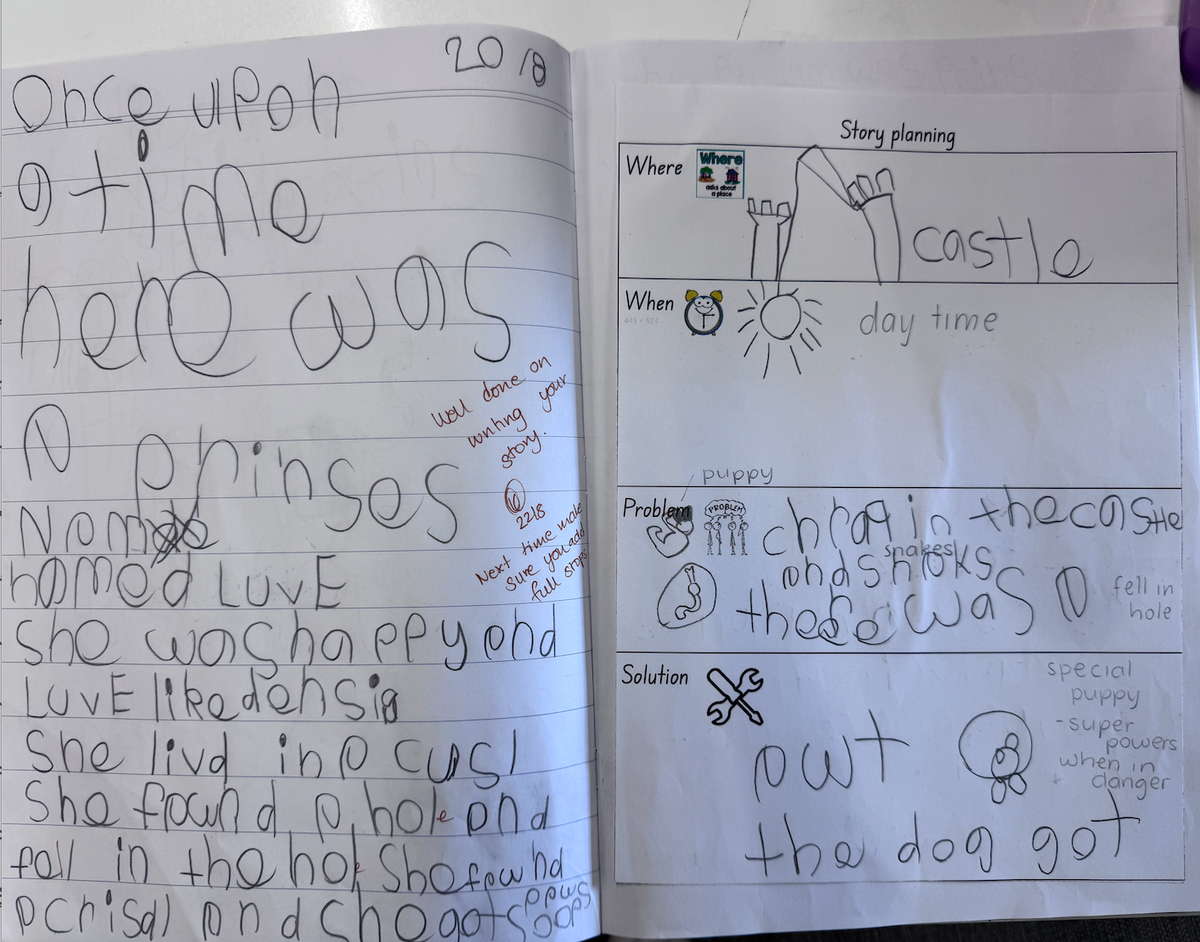 20/8
Once upon
a time
here was
a prinses
named LUVE
she was happy and
LUVE like densig
She livd in a cusl
She fawnd a hole and
fall in the hole She fawnd
a crisdl and She got
Well done on
writing your
story.
22/8
Next time make
sure you add
full stops
Story planning
Where
Where
asks about
a place
castle
When
day time
puppy
Problem
PROBLEM
in the castle
snakes
and snaks
there was a
fell in
hole
Solution
special
puppy
-super
powers
when in
danger
awt
the dog got